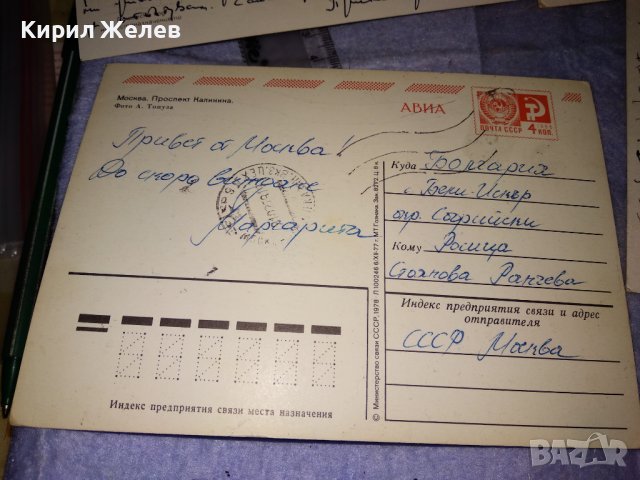 Кирил Желев
Москва. Проспект Калинина.
Фото А. Томуза
АВИА
ПОЧТА СССР 4 КОП.
Привет от Москва!
До скоро виждане
Маргарита
Куда Болгария
с. Бели-Искър
окр. Софийски
Кому Росица
Стоянова Ранчева
Индекс предприятия связи и адрес
отправителя
СССР Москва
Индекс предприятия связи места назначения
© Министерство связи СССР. 1978 Л 100246 6/XII-77 г. МТ Гознака. Зак. 8272. Ц. 8 к.
BAZAR